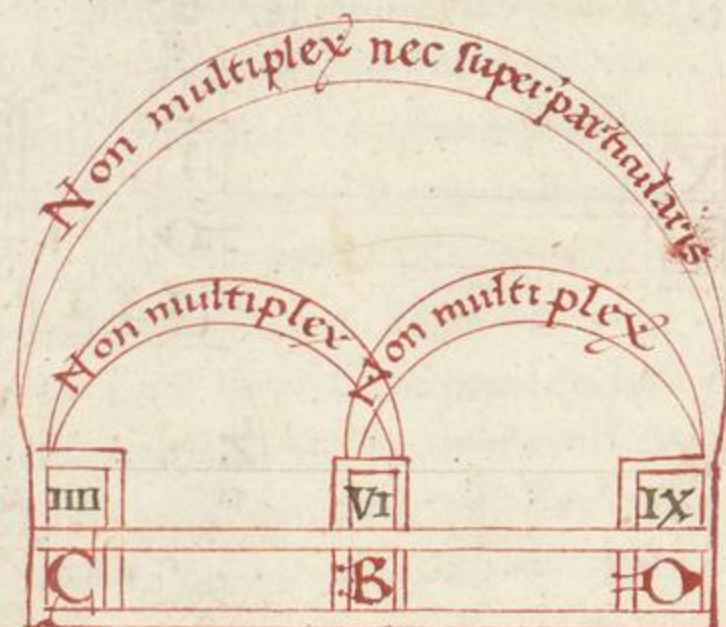 Non multiplex nec superparticularis
Non multiplex Non multiplex
IIII VI IX
C B D